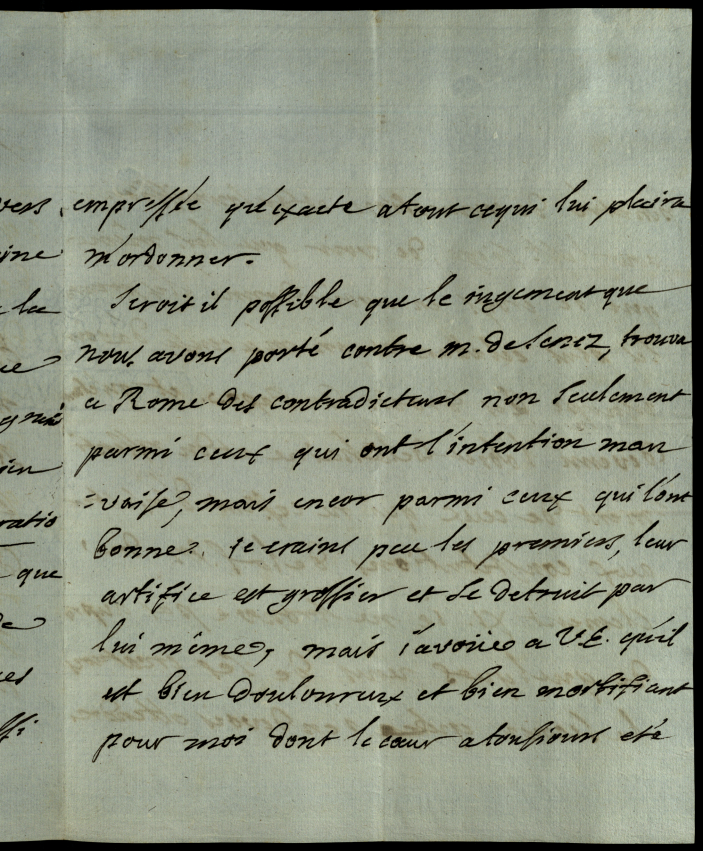 empressée qu'exacte a tout ce qui lui plaira
m'ordonner.
Seroit il possible que le iugement que
nous avons porté contre m. de Senez, trouva
a Rome des contradicteurs non seulement
parmi ceux qui ont l'intention mau
=vaise, mais encor parmi ceux qui l'ont
bonne? ie crains peu les premiers, leur
artifice est grossier et se detruit par
lui même, mais i'avoüe a V.E. qu'il
est bien douloureux et bien mortifiant
pour moi dont le cœur a tousiours eté
vers
ine
la
ien
ratio
que
de